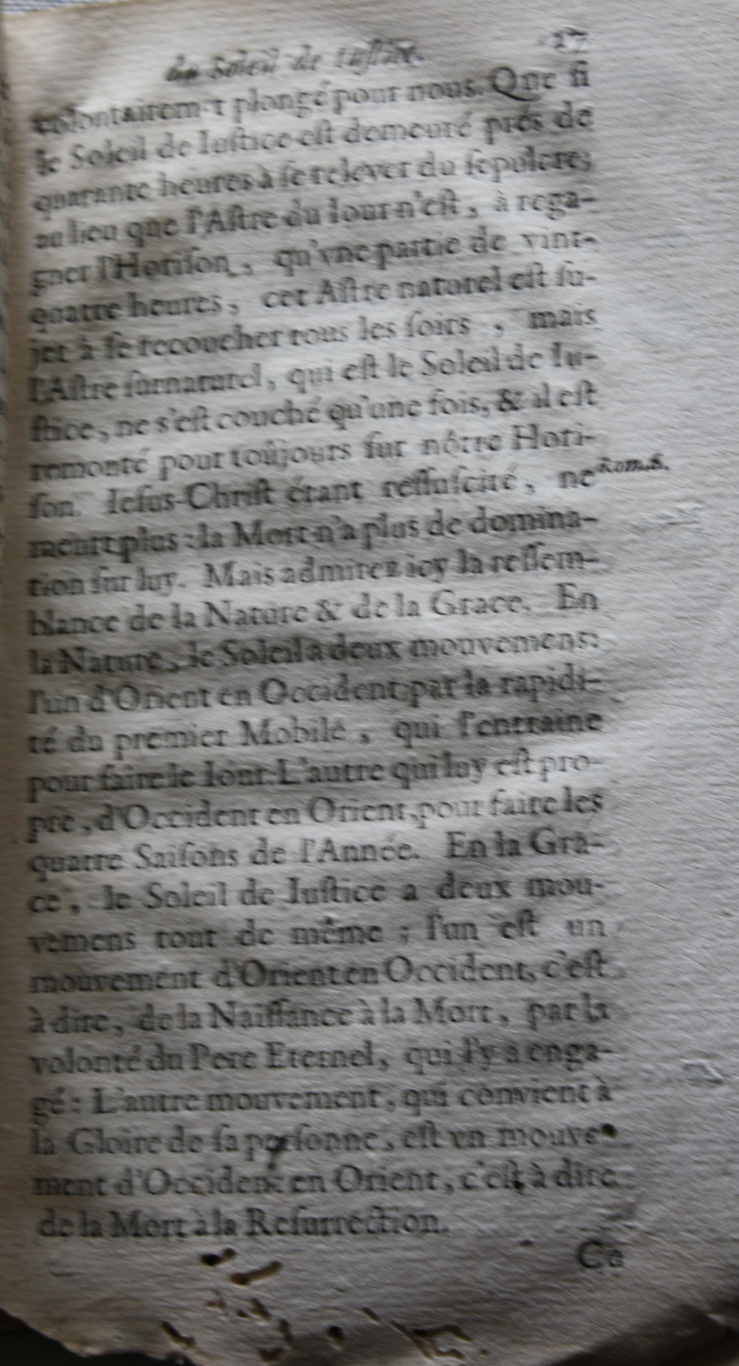 du Soleil de Iustice. 17
volontairem-t plongé pour nous. Que ſi
le Soleil de Iuſtice eſt demeuré prés de
quarante heures à ſe relever du ſepulcre;
au lieu que l'Aſtre du Iour n'eſt, à rega-
gner l'Horiſon, qu'vne partie de vint-
quatre heures, cet Aſtre naturel eſt ſu-
jet à ſe recoucher tous les ſoirs, mais
l'Aſtre ſurnaturel, qui eſt le Soleil de Iu-
ſtice, ne s'eſt couché qu'une fois, & il eſt
remonté pour toûjours ſur nôtre Hori-
ſon. Ieſus-Chriſt étant reſſuſcité, ne
Rom. 6.
meurt plus : la Mort n'a plus de domina-
tion ſur luy. Mais admirez icy la reſſem-
blance de la Nature & de la Grace. En
la Nature, le Soleil a deux mouvemens:
l'un d'Orient en Occident par la rapidi-
té du premier Mobile, qui l'entraine
pour faire le Iour. L'autre qui luy eſt pro-
pre, d'Occident en Orient, pour faire les
quatre Saiſons de l'Année. En la Gra-
ce, le Soleil de Iuſtice a deux mou-
vemens tout de même ; l'un eſt un
mouvement d'Orient en Occident, c'eſt
à dire, de la Naiſſance à la Mort, par la
volonté du Pere Eternel, qui l'y a enga-
gé : L'autre mouvement, qui convient à
la Gloire de ſa perſonne, eſt vn mouve-
ment d'Occident en Orient, c'eſt à dire
de la Mort à la Reſurrection.
Ce